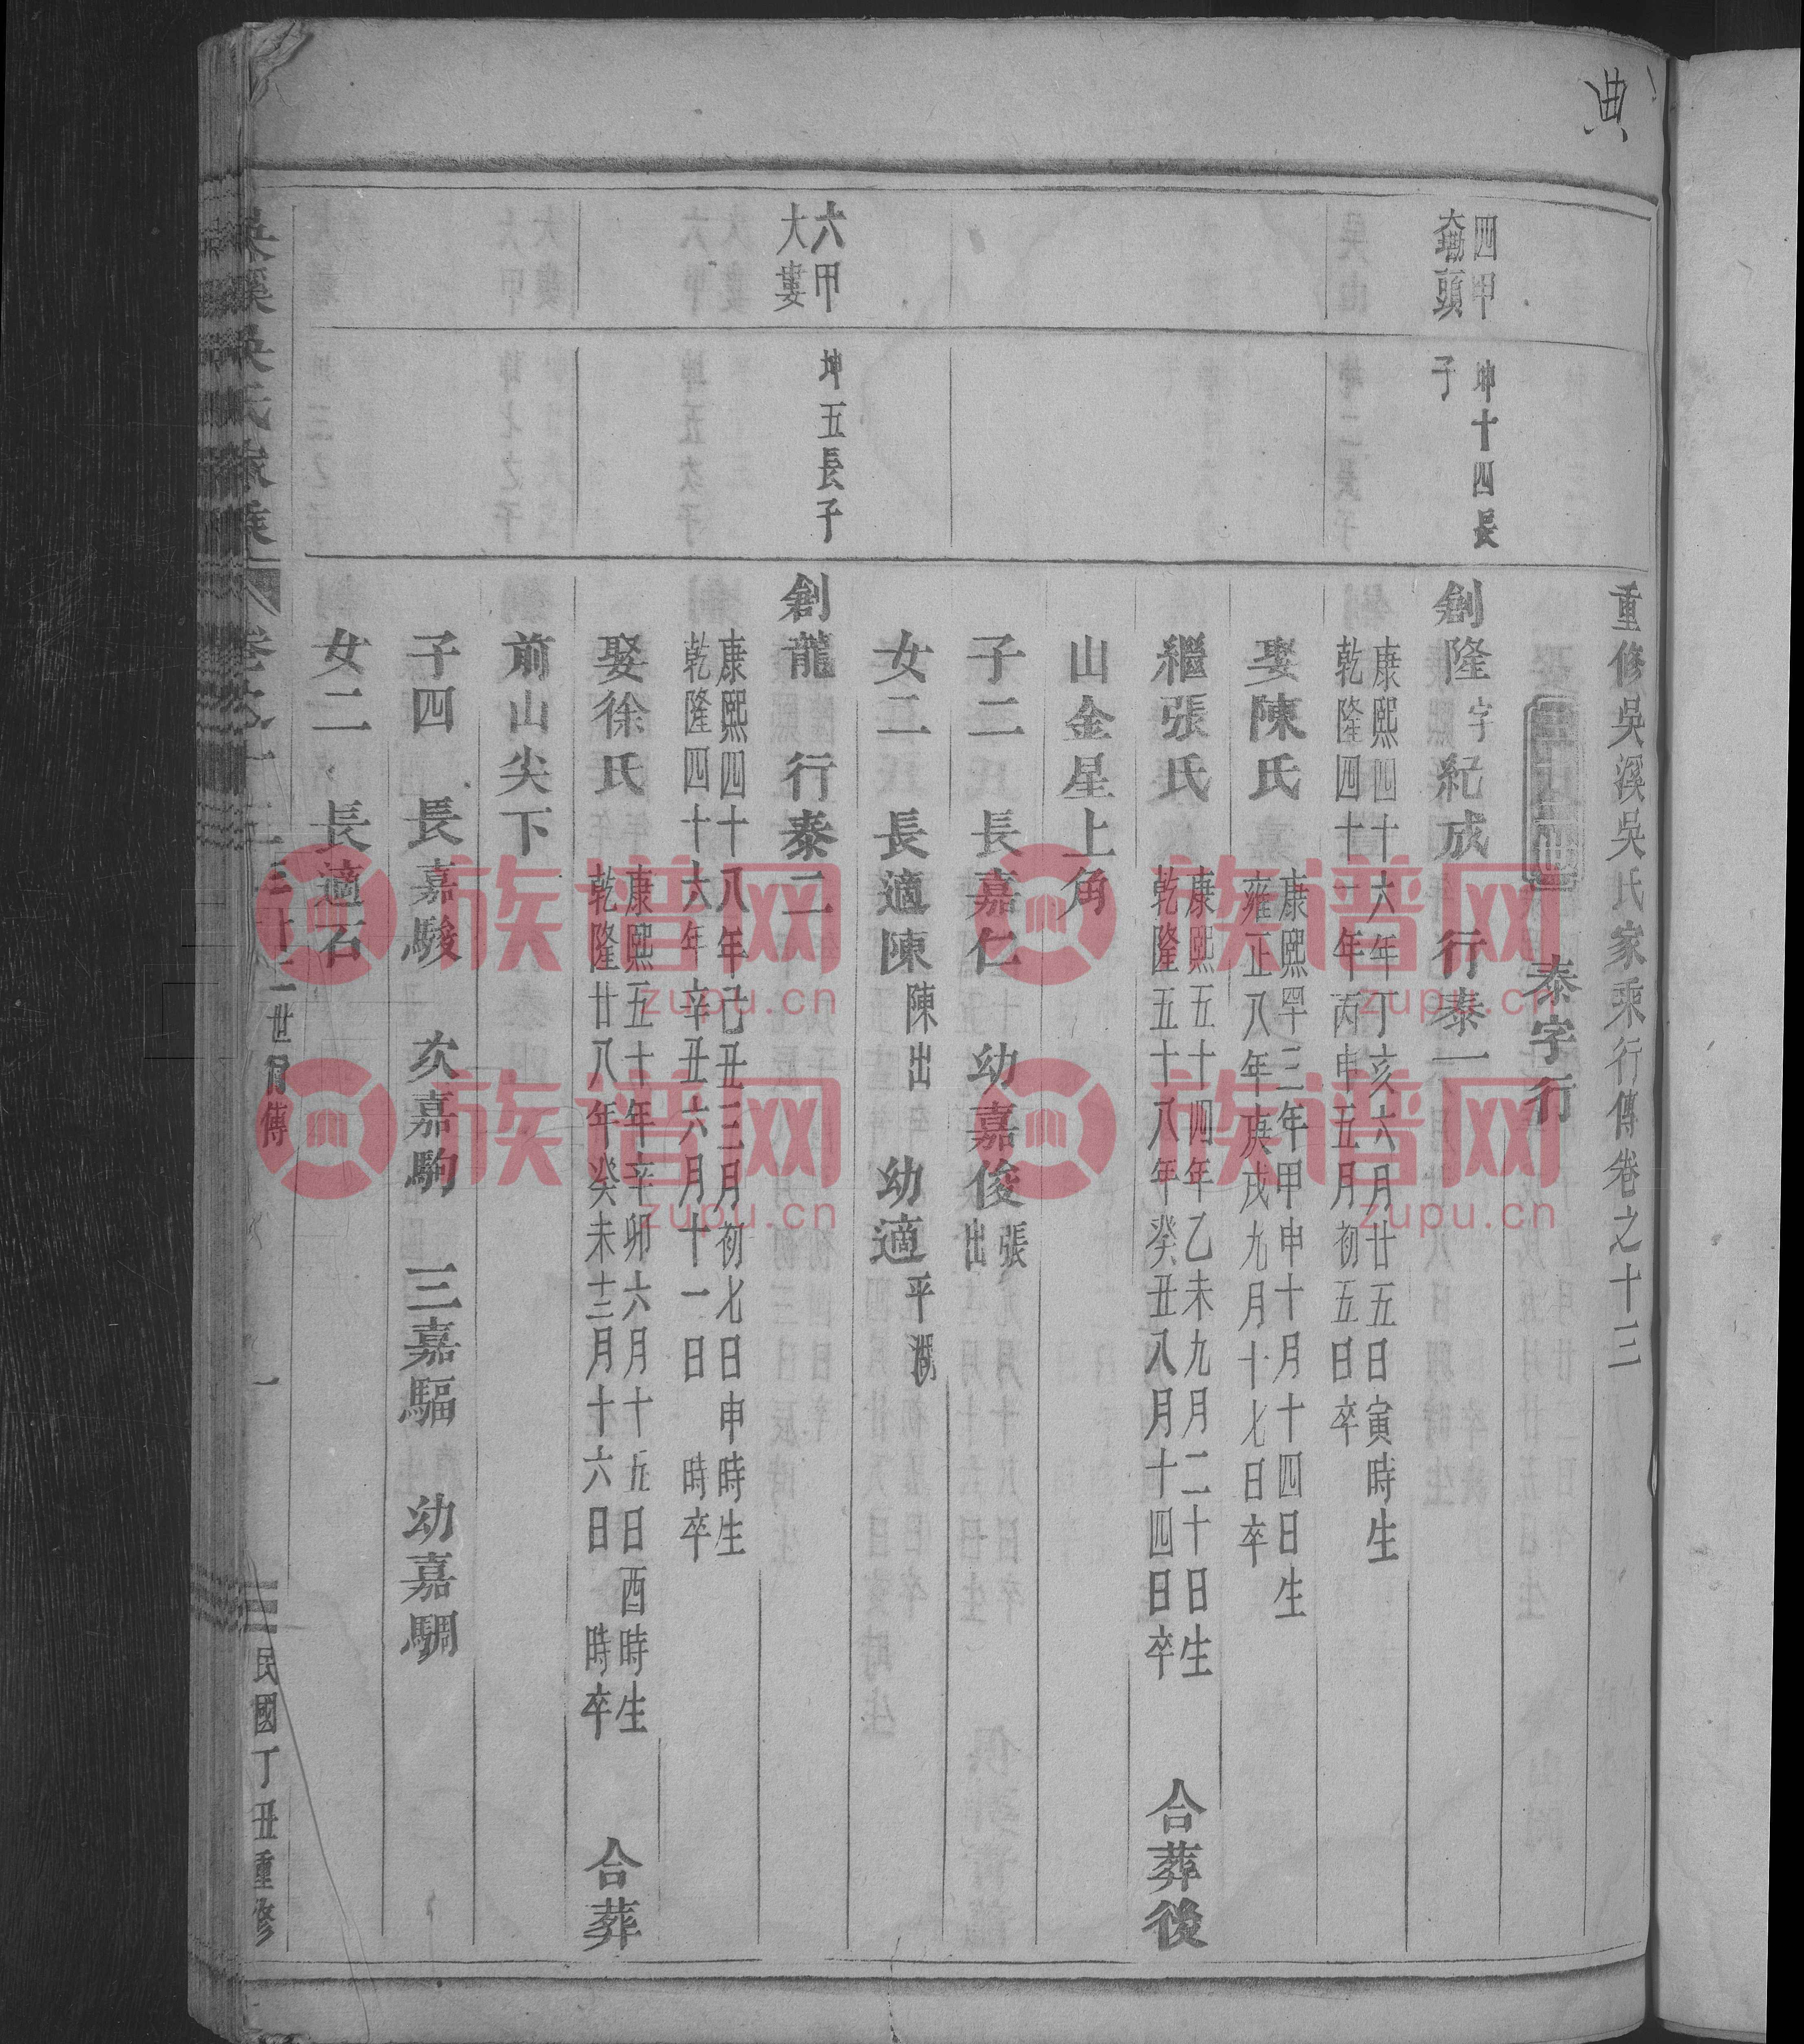 典
重修吳溪吳氏家乘行傳卷之十三
泰字行
四甲
坳頭
坤十四長
子
創隆字紀成 行泰一
康熙四十六年丁亥六月廿五日寅時生
乾隆四十一年丙申五月初五日卒
娶陳氏
康熙四十三年甲申十月十四日生
雍正八年庚戌九月十七日卒
繼張氏
康熙五十四年乙未九月二十日生
乾隆五十八年癸丑八月十四日卒
合葬後
山金星上角
子二 長嘉仁 幼嘉俊張出
女二 長適陳陳出 幼適平湖
六甲
大婁
坤五長子
創龍 行泰二
康熙四十八年己丑三月初七日申時生
乾隆四十六年辛丑六月十一日 時卒
娶徐氏
康熙五十年辛卯六月十五日酉時生
乾隆廿八年癸未十二月十六日 時卒
合葬
前山尖下
子四 長嘉駿 次嘉駒 三嘉驅 幼嘉騆
女二 長適石
吳溪吳氏家乘
卷之十三
世行傳
一
民國丁丑重修
族谱网
zupu.cn
族谱网
zupu.cn
族谱网
zupu.cn
族谱网
zupu.cn